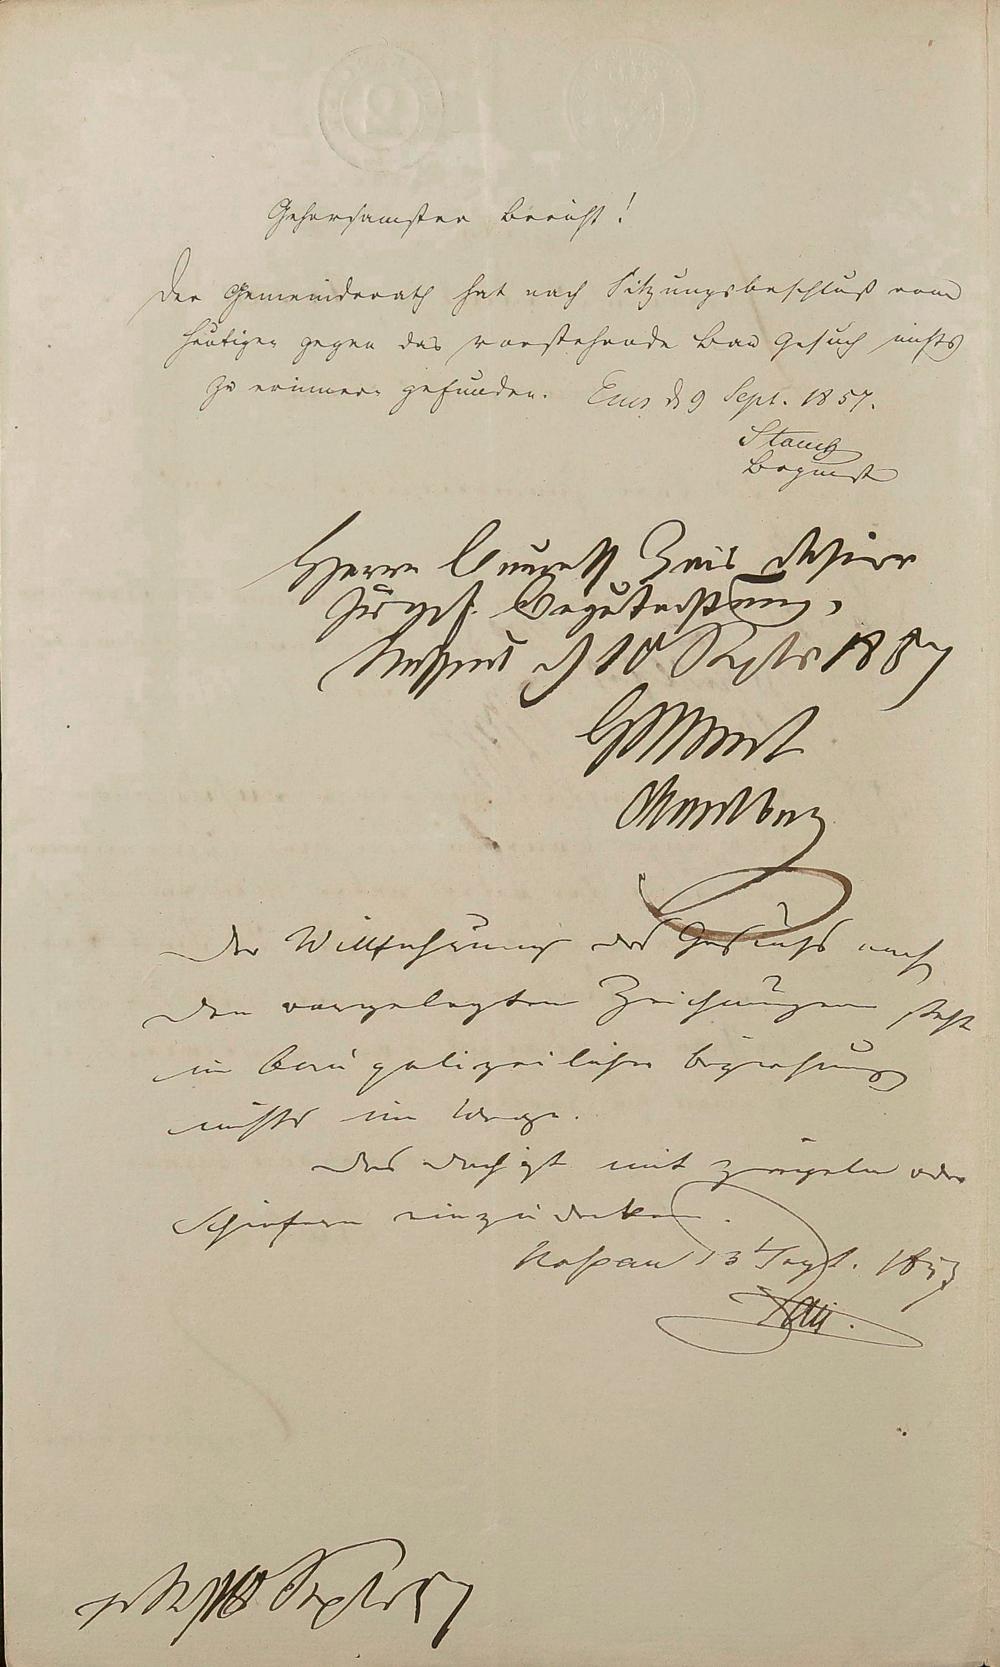 Gehorsamster Bericht!
Der Gemeinderath hat nach Sitzungsbeschluß vom
heutigen gegen das vorstehende Bau Gesuch nichts
zu erinnern gefunden. Ems d 9 Sept. 1857.
Herrn Zais dahier
zur gef. Begutachtung.
Nassau d 10 Septbr 1857
Der Willfahrung des Gesuchs nach
den vorgelegten Zeichnungen steht
in baupolizeilicher Beziehung
nichts im Wege.
Das Dach ist mit Ziegeln oder
Schiefern einzudecken.
Nassau 13 Sept. 1857
Zais.
Septbr 57